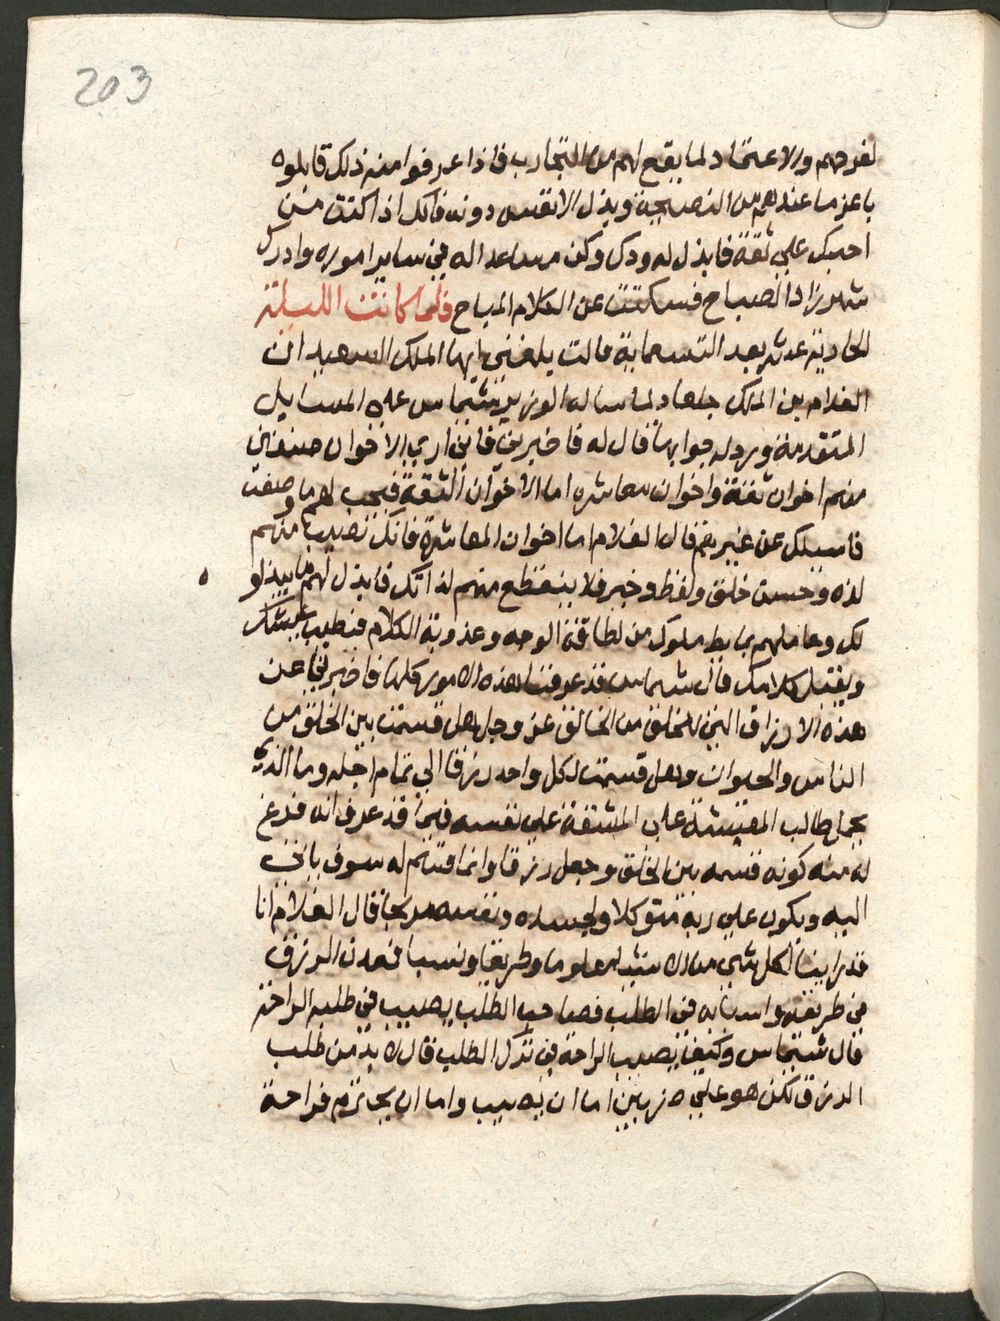 203
لفرحهم والاعتماد لما يقع لهم من التجارب فاذا عرفوا منه ذلك قابلوه
باعز ما عندهم من النصيحة وبذل الانفس دونه فانك اذا كنت من
احبك علي ثقة فابذل له ودك وكن مساعدا له في ساير اموره وادرك
شهرزاد الصباح فسكتت عن الكلام المباح فلما كانت الليلة
الحادية عشر بعد التسعماية قالت بلغني ايها الملك السعيد ان
الغلام بن الملك جلعاد لما ساله الوزير شماس علي المسايل
المتقدمة ورد له جوابها قال له فاخبرني فاني اري الاخوان صنفان
منهم اخوان ثقة واخوان معاشره اما الاخوان الثقة فيجب لهم ما وصفت
فاسيلك عن غيرهم قال الغلام اما اخوان المعاشرة فانك تصيب منهم
لذه وحسن خلق ولفظ وخير فلا ينقطع منهم لذاتك فابذل لهم ما يبذلو
لك وعاملهم بما يعاملوك من لطافة الوجه وعذوبة الكلام فيطيب عيشك
ويقبل كلامك قال شماس قد عرفنا هذه الامور كلها فاخبرني عن
هذه الارزاق التي للخلق من الخالق عز وجل هل قسمت بين الخلق من
الناس والحيوان وهل قسمت لكل واحد رزقا الي تمام اجله وما الذي
يحمل طالب المعيشة علي المشقة علي نفسه فيما قد عرف انه فرغ
له منه كونه قسمه بين الخلق وجعل رزقا وانما قسم له سوف ياتي
اليه ويكون علي ربه متوكلا ولجسده ونفسه مريحا قال الغلام انا
قد راينا لكل شي من الاشيا معلوما وطريقا ونسبا فعدن الرزق
في طريقه واسبابه في الطلب فصاحب الطلب يصيب في طلبه الراحة
قال شماس وكيف يصيب الراحة في ترك الطلب قال لا بد من طلب
الرزق لكن هو علي ضربين اما ان يصيب واما ان يحترم فراحة